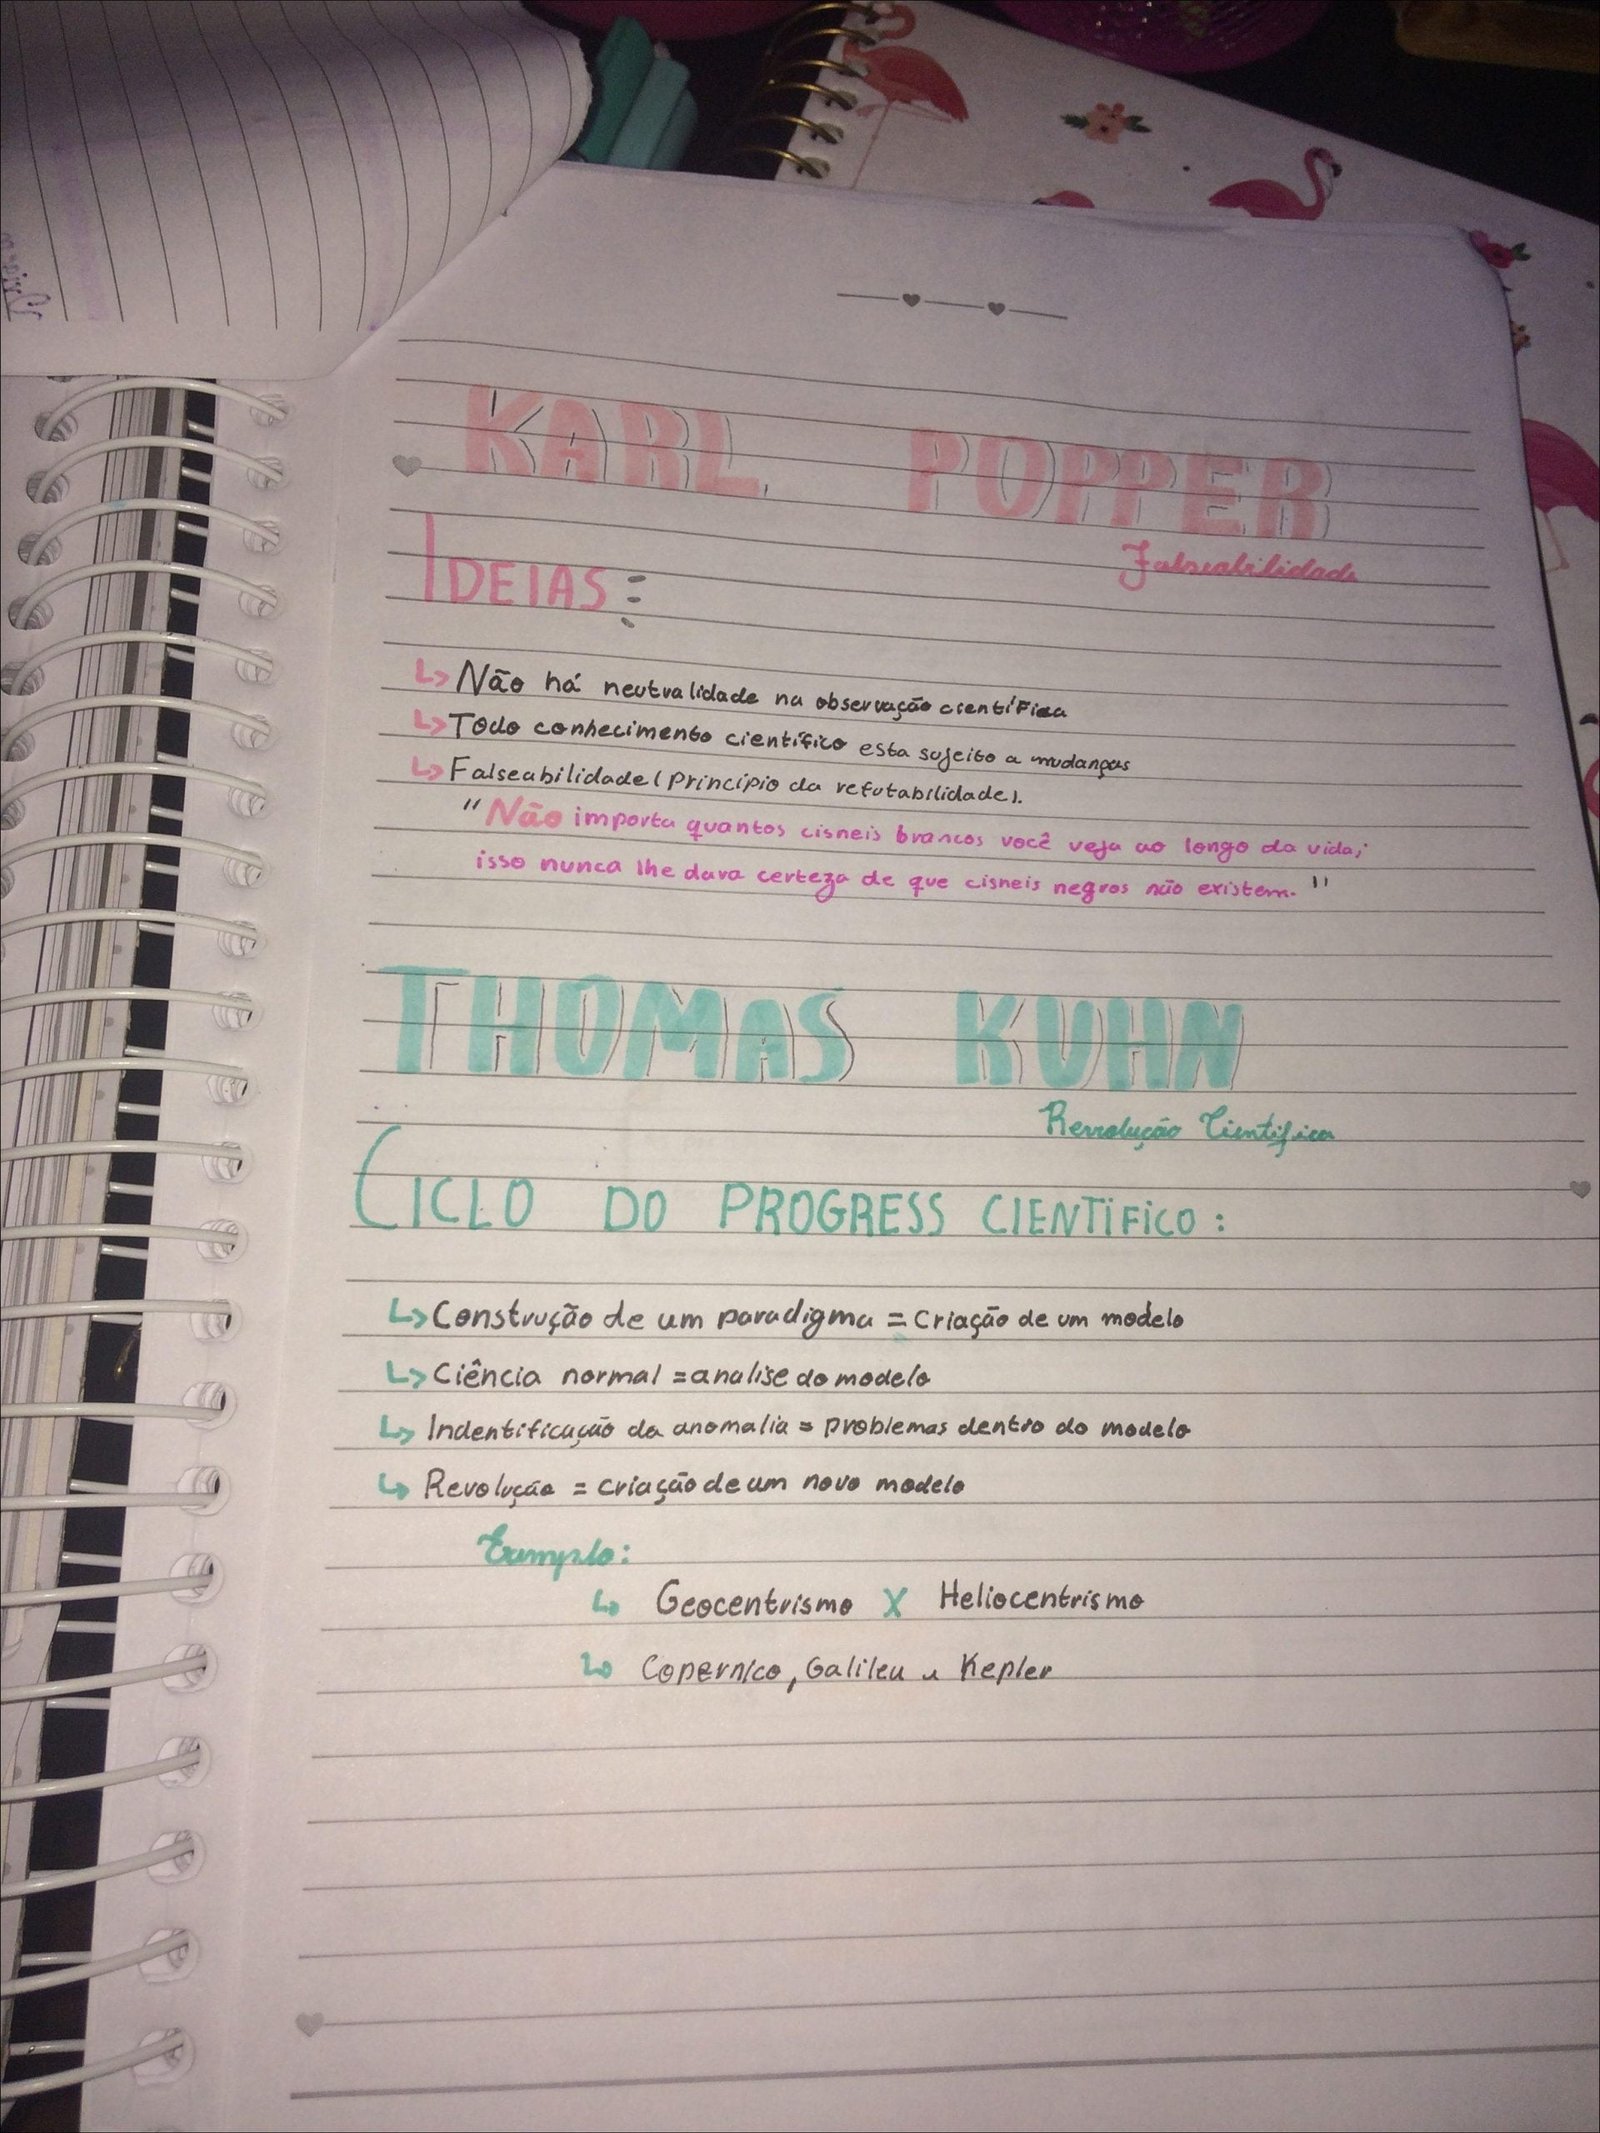 KARL POPPER
Falseabilidade
IDEIAS:
↳ Não há neutralidade na observação científica
↳ Todo conhecimento científico esta sujeito a mudanças
↳ Falseabilidade (princípio da refutabilidade).
"Não importa quantos cisneis brancos você veja ao longo da vida;
isso nunca lhe dara certeza de que cisneis negros não existem."
THOMAS KUHN
Revolução Cientifica
CICLO DO PROGRESS CIENTIFICO:
↳ Construção de um paradigma = Criação de um modelo
↳ Ciência normal = analise do modelo
↳ Indentificação da anomalia = problemas dentro do modelo
↳ Revolução = criação de um novo modelo
Exemplo:
↳ Geocentrismo X Heliocentrismo
↳ Copernico, Galileu e Kepler